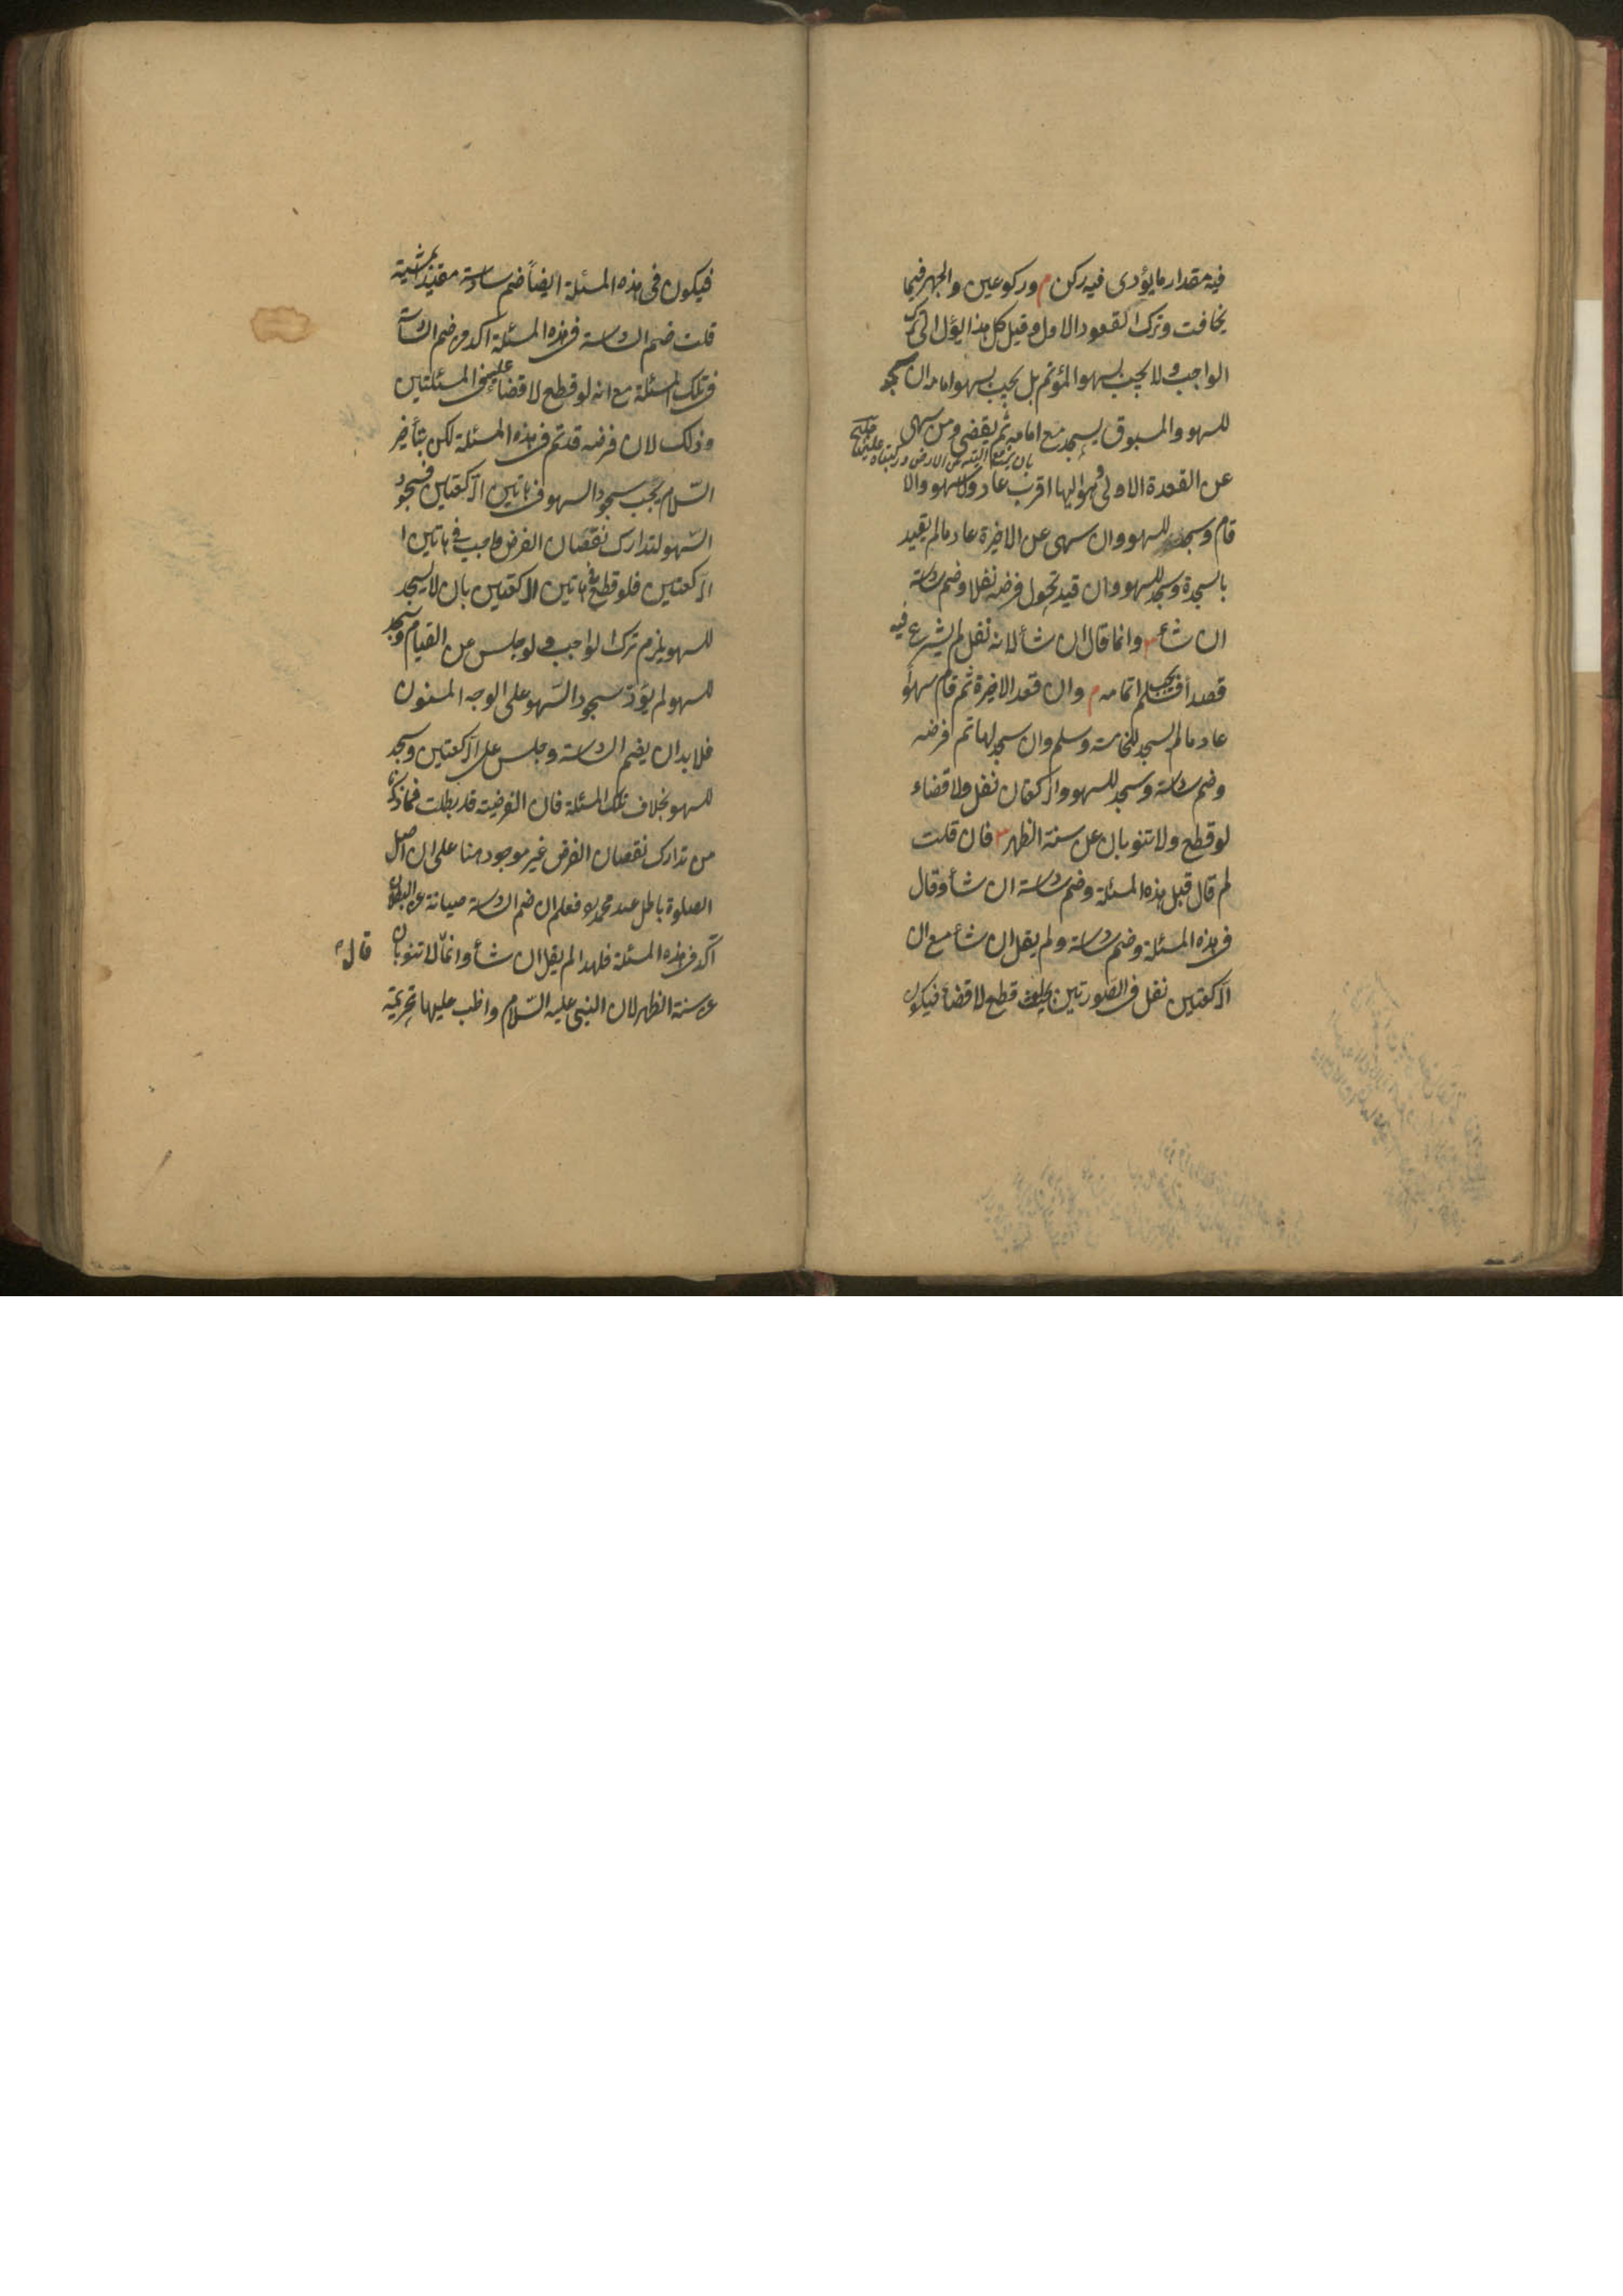 فيه مقدار ما يؤدى فيه ركن م وركوعين والجهر فيما
يخافت وترك القعود الاول وقيل كل هذا يؤل الى ترك
الواجب ولا يجب بسهو المؤتم بل يجب بسهو امامه ان سجد
للسهو والمسبوق يسجد مع امامه ثم يقضى ومن سهى
عن القعدة الاولى وهو اليها اقرب عاد ولا سهو والا
قام وسجد للسهو وان سهى عن الاخيرة عاد مالم يقيد
بالسجدة وسجد للسهو وان قيد تحول فرضه نفلا وضم سادسة
ان شاء وانما قال ان شأ لانه نفل لم يشرع فيه
قصدا فلم يجب اتمامه م وان قعد الاخيرة ثم قام سهوا
عاد مالم يسجد للخامسة وسلم وان سجد لها تم فرضه
وضم سادسة وسجد للسهو والركعتان نفل ولا قضاء
لو قطع ولا تنوبان عن سنة الظهر فان قلت
لم قال قبل هذه المسئلة وضم سادسة ان شأ وقال
فى هذه المسئلة وضم سادسة ولم يقل ان شأ مع ان
الركعتين نفل فى الصورتين بحيث قطع لا قضاء فيكون
فيكون فى هذه المسئلة ايضاً ضم سادسة مقيدا بمشيته
قلت ضم السادسة فى هذه المسئلة اكد من ضم السادسة
فى تلك المسئلة مع انه لو قطع لا قضاء عليه فى المسئلتين
وذلك لان فرضه قد تم فى هذه المسئلة لكن بتأخير
السّلام يجب سجود السهو فى هاتين الركعتين فسجود
السّهو لتدارك نقصان الفرض واجب فى هاتين ا
الركعتين فلو قطع هاتين الركعتين بان لا يسجد
للسهو يلزم ترك الواجب ولو جلس من القيام وسجد
للسهو لم يؤدّ سجود السّهو على الوجه المسنون
فلا بد ان يضم السادسة وجلس على الركعتين وسجد
للسهو بخلاف تلك المسئلة فان الفرضية قد بطلت فما ذكرنا
من تدارك نقصان الفرض غير موجود هنا على ان اصل
الصلوة باطل عند محمد فعلم ان ضم السادسة صيانة عن البطلان
اكد فى هذه المسئلة فلهذا لم يقل ان شأ وانما لا تنوبان
قال
عن سنة الظهر لان النبى عليه السّلام واظب عليها بتحريمة